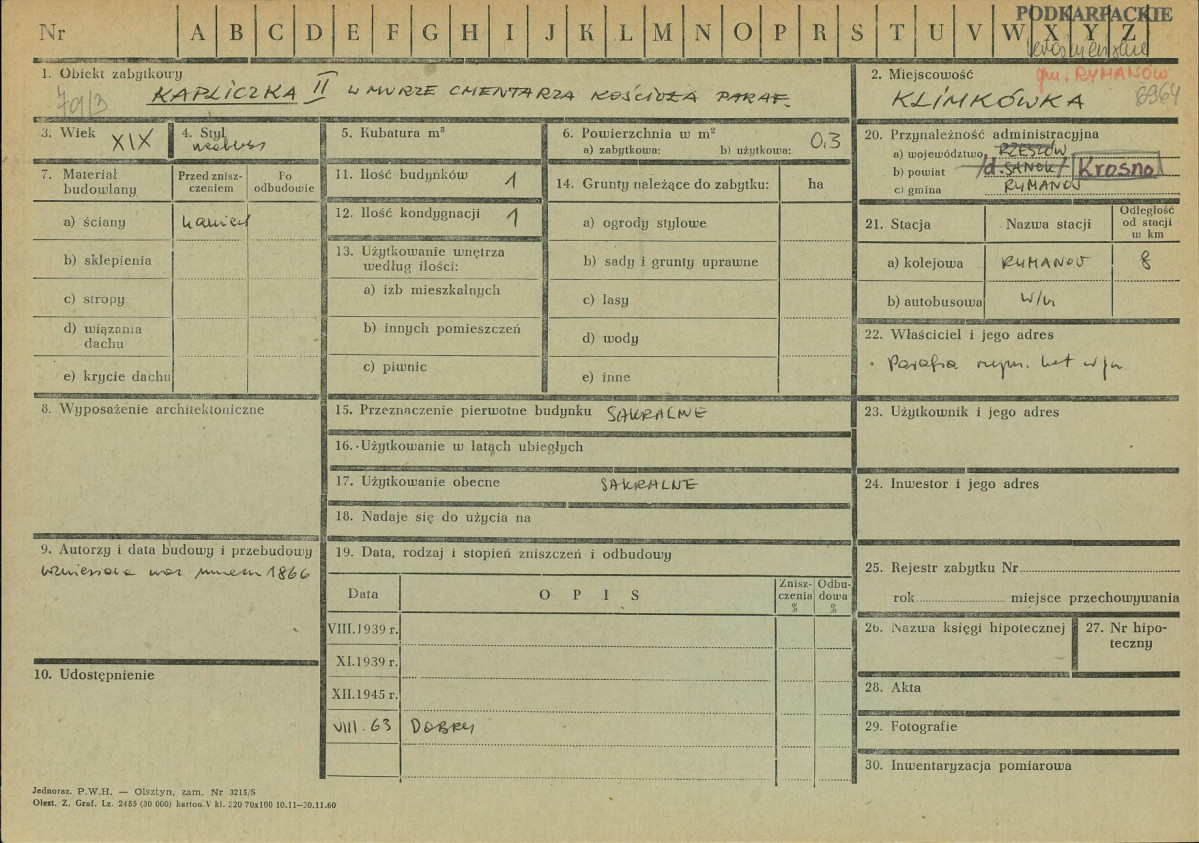 PODKARPACKIE
Nr A B C D E F G H I J K L M N O P R S T U V W X Y Z
gm. RYMANÓW
6964
1. Obiekt zabytkowy
KAPLICZKA II W MURZE CMENTARZA KOŚCIOŁA PARAF.
2. Miejscowość
KLIMKÓWKA
3. Wiek XIX
4. Styl
5. Kubatura m³
6. Powierzchnia w m²
a) zabytkowa: b) użytkowa: 0,3
20. Przynależność administracyjna
a) województwo RZESZÓW
b) powiat /d. SANOK/ Krosno
c) gmina RYMANÓW
7. Materiał budowlany
Przed zniszczeniem
Po odbudowie
a) ściany kamień
b) sklepienia
c) stropy
d) wiązania dachu
e) krycie dachu
11. Ilość budynków 1
12. Ilość kondygnacji 1
13. Użytkowanie wnętrza według ilości:
a) izb mieszkalnych
b) innych pomieszczeń
c) piwnic
14. Grunty należące do zabytku: ha
a) ogrody stylowe
b) sady i grunty uprawne
c) lasy
d) wody
e) inne
21. Stacja Nazwa stacji Odległość od stacji w km
a) kolejowa RYMANÓW 8
b) autobusowa w/m
22. Właściciel i jego adres
Parafia rzym. kat w/m
8. Wyposażenie architektoniczne
15. Przeznaczenie pierwotne budynku SAKRALNE
16. Użytkowanie w latach ubiegłych
17. Użytkowanie obecne SAKRALNE
18. Nadaje się do użycia na
23. Użytkownik i jego adres
24. Inwestor i jego adres
9. Autorzy i data budowy i przebudowy
wzniesiona wraz z murem 1866
10. Udostępnienie
19. Data, rodzaj i stopień zniszczeń i odbudowy
Data OPIS Zniszczenia % Odbudowa %
VIII.1939 r.
XI.1939 r.
XII.1945 r.
VIII. 63 DOBRY
25. Rejestr zabytku Nr
rok miejsce przechowywania
26. Nazwa księgi hipotecznej
27. Nr hipoteczny
28. Akta
29. Fotografie
30. Inwentaryzacja pomiarowa
Jednoraz. P.W.H. — Olsztyn, zam. Nr 3215/S
Olszt. Z. Graf. Lz. 2485 (30 000) karton V kl. 220 70x100 10.11—30.11.60